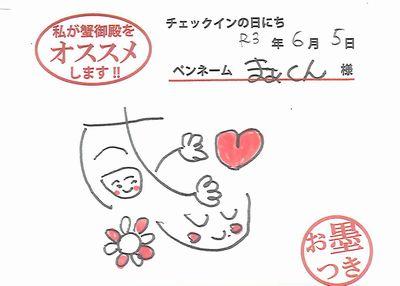 私が蟹御殿を
オススメ
します!!
チェックインの日にち
R3 年 6 月 5 日
ペンネーム くん 様
お墨
つき